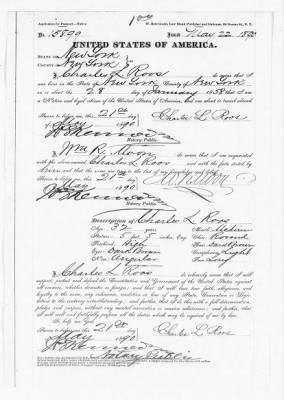 Application for Passport—Native
No. 15899 Issued May 22 1890
UNITED STATES OF AMERICA.
State of New York
County of New York
I, Charles L Roos do swear that I
was born in the State of New York County of New York
on or about the 28 day of January 1858 that I am
a Native and loyal citizen of the United States of America, and am about to travel abroad
Sworn to before me, this 21st day
of May 1890 Charles L Roos
Notary Public
I, Wm R. do swear that I am acquainted
with the above-named Charles L Roos and with the facts stated by
him and that the same are true to the best of my knowledge and belief.
Sworn to before me, this 21st day
of May 1890
Notary Public
Description of Charles L Roos
Age: 32 years Mouth: Medium
Stature: 5 feet inches, Eng. Chin: Round
Forehead: High Hair: Dark Brown
Eyes: Dark Brown Complexion:
Nose: Angular Face:
I, Charles L Roos do solemnly swear that I will
support, protect and defend the Constitution and Government of the United States against
all enemies, whether domestic or foreign; and that I will bear true faith, allegiance and
loyalty to the same, any ordinance, resolution or law of any State, Convention or Legislature
to the contrary notwithstanding; and further, that I do this with a full determination,
pledge and purpose, without any mental reservation or evasion whatsoever; and further, that
I will well and faithfully perform all the duties which may be required of me by law.
So help me God.
Sworn to before me, this 21st day
of May 1890 Charles L Roos
Notary Public